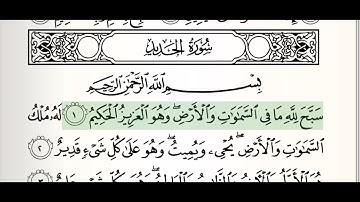 سُورَةُ الحَدِيدِ
بِسْمِ ٱللَّهِ ٱلرَّحْمَٰنِ ٱلرَّحِيمِ
سَبَّحَ لِلَّهِ مَا فِي ٱلسَّمَٰوَٰتِ وَٱلْأَرْضِۖ وَهُوَ ٱلْعَزِيزُ ٱلْحَكِيمُ ١ لَهُۥ مُلْكُ
ٱلسَّمَٰوَٰتِ وَٱلْأَرْضِۖ يُحْيِۦ وَيُمِيتُۖ وَهُوَ عَلَىٰ كُلِّ شَيْءٍ قَدِيرٌ ٢